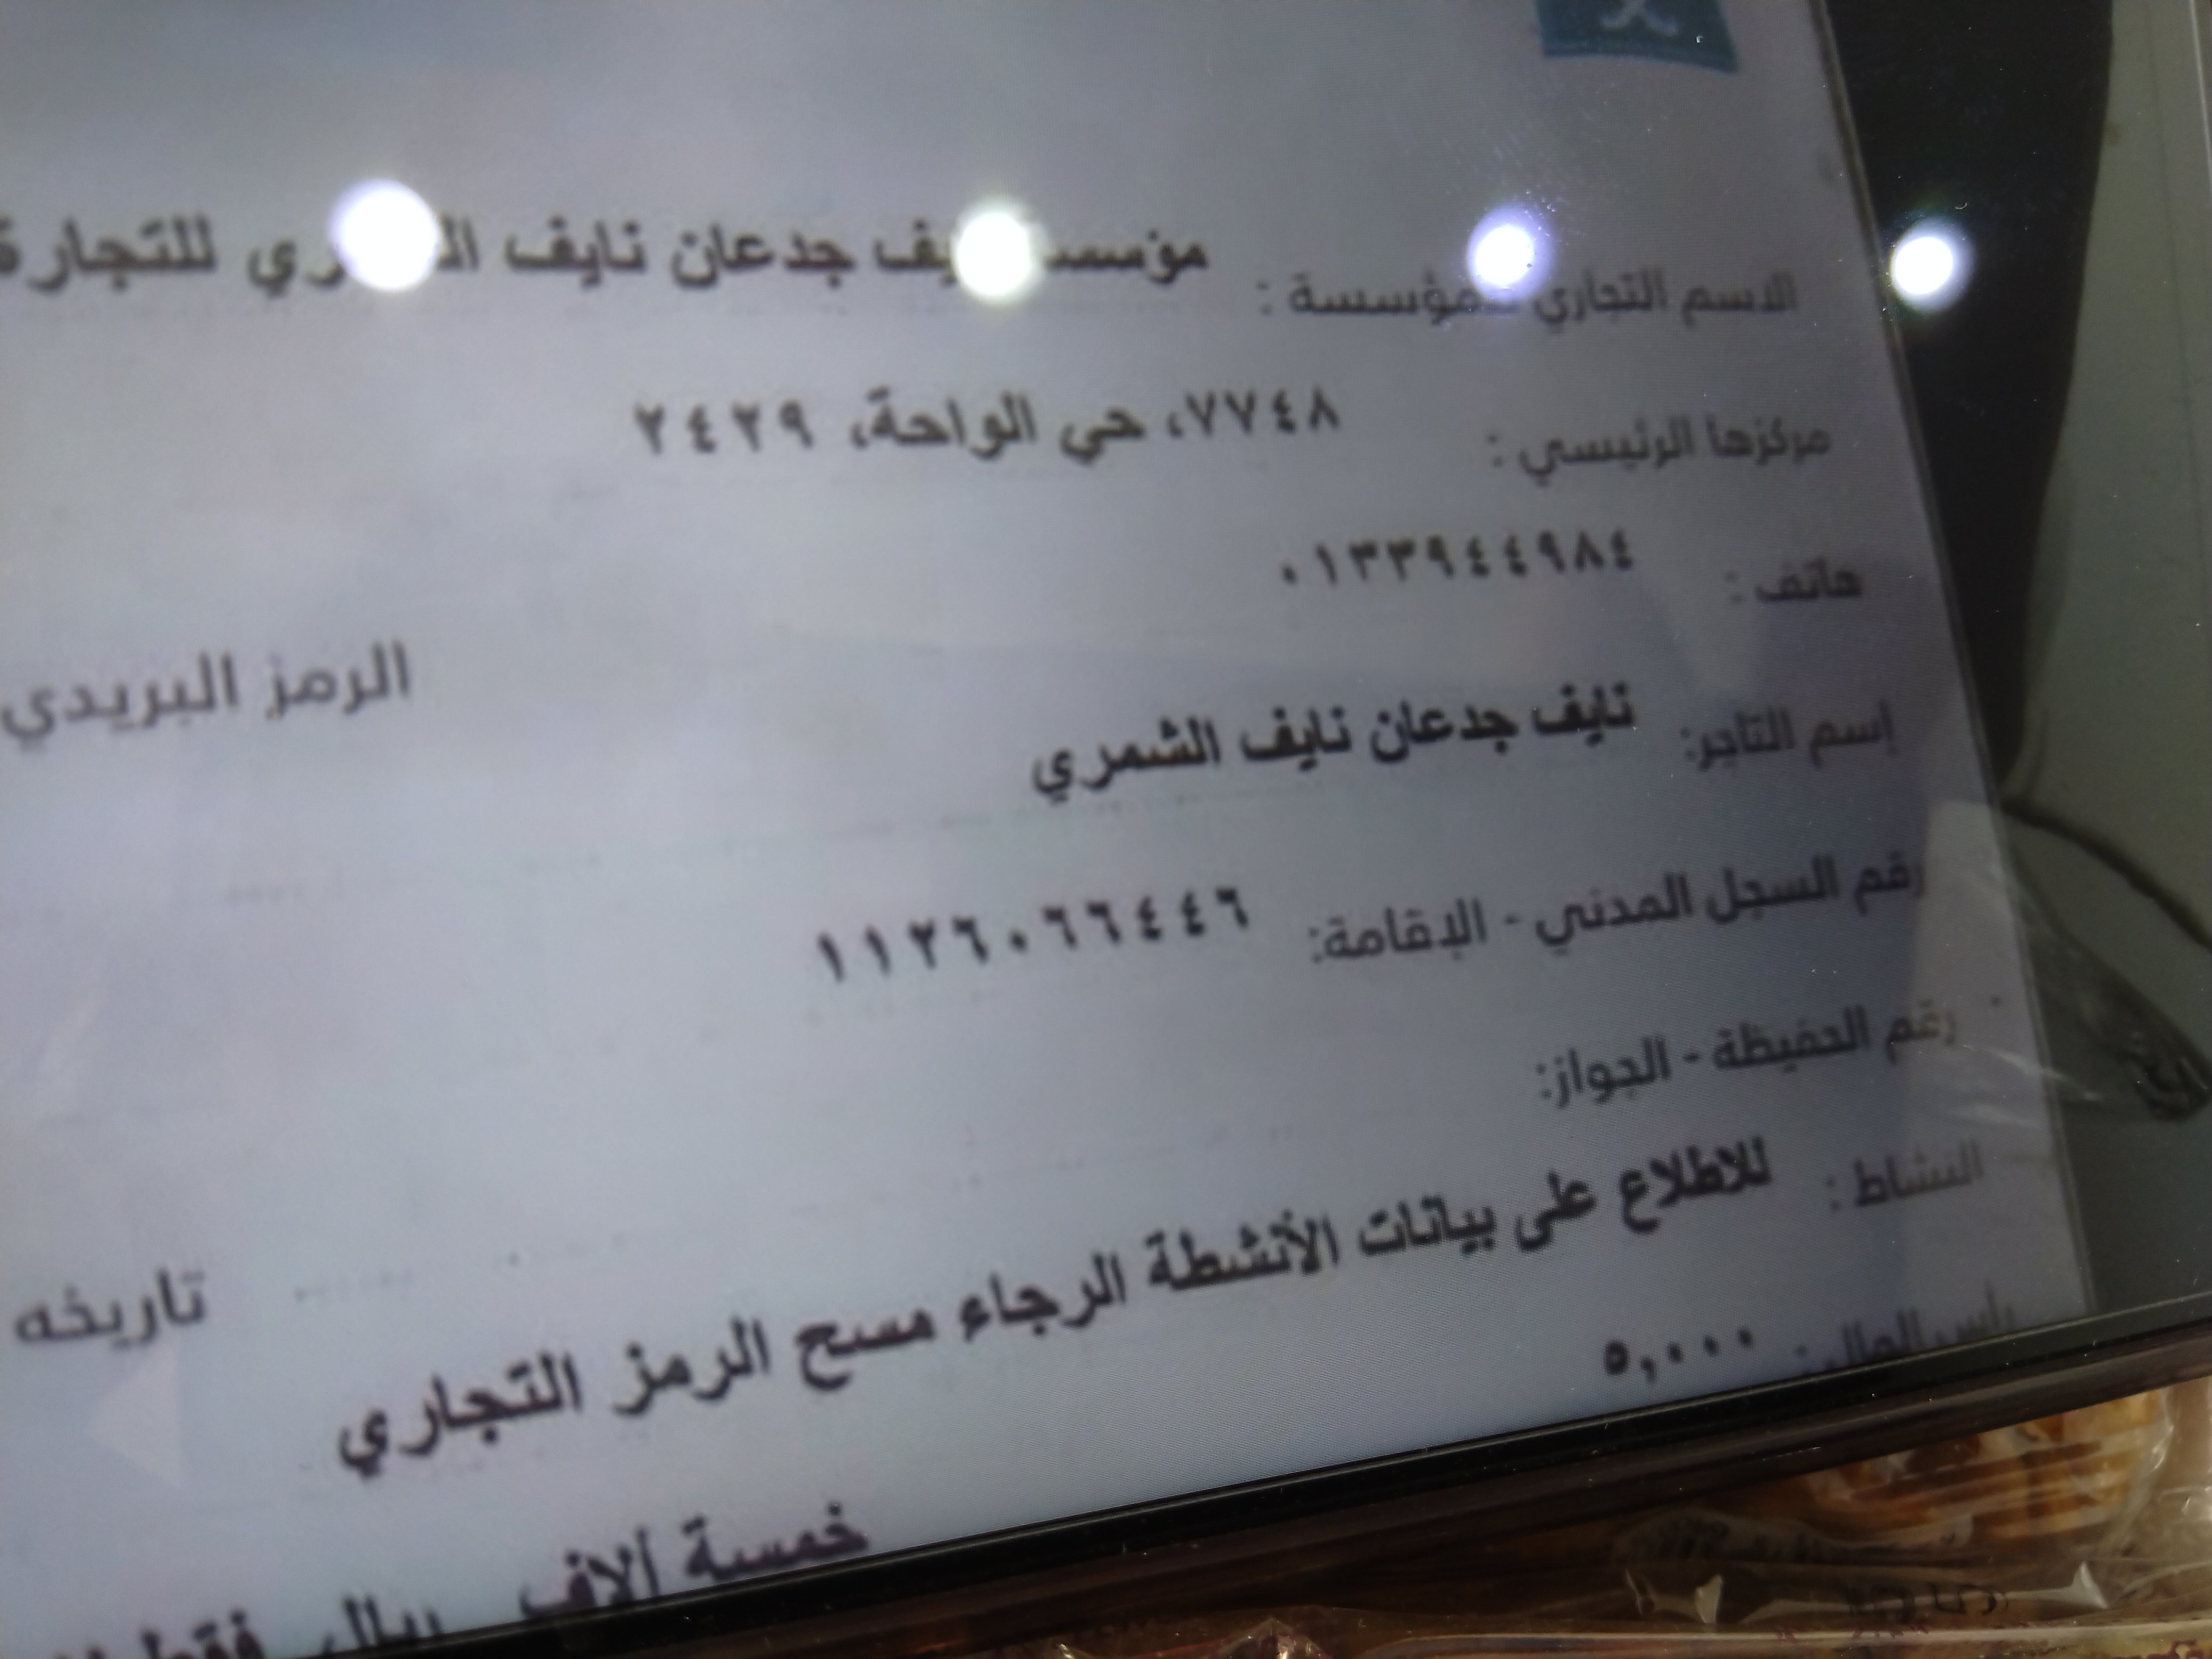 الاسم التجاري للمؤسسة : مؤسسة نايف جدعان نايف الشمري للتجارة
مركزها الرئيسي : ٧٧٤٨، حي الواحة، ٢٤٢٩
هاتف : ٠١٣٣٩٤٤٩٨٤
الرمز البريدي
إسم التاجر: نايف جدعان نايف الشمري
رقم السجل المدني - الإقامة: ١١٢٦٠٦٦٤٤٦
رقم الحفيظة - الجواز:
تاريخه
النشاط : للاطلاع على بيانات الأنشطة الرجاء مسح الرمز التجاري
رأس المال : ٥,٠٠٠
خمسة آلاف ريال فقط